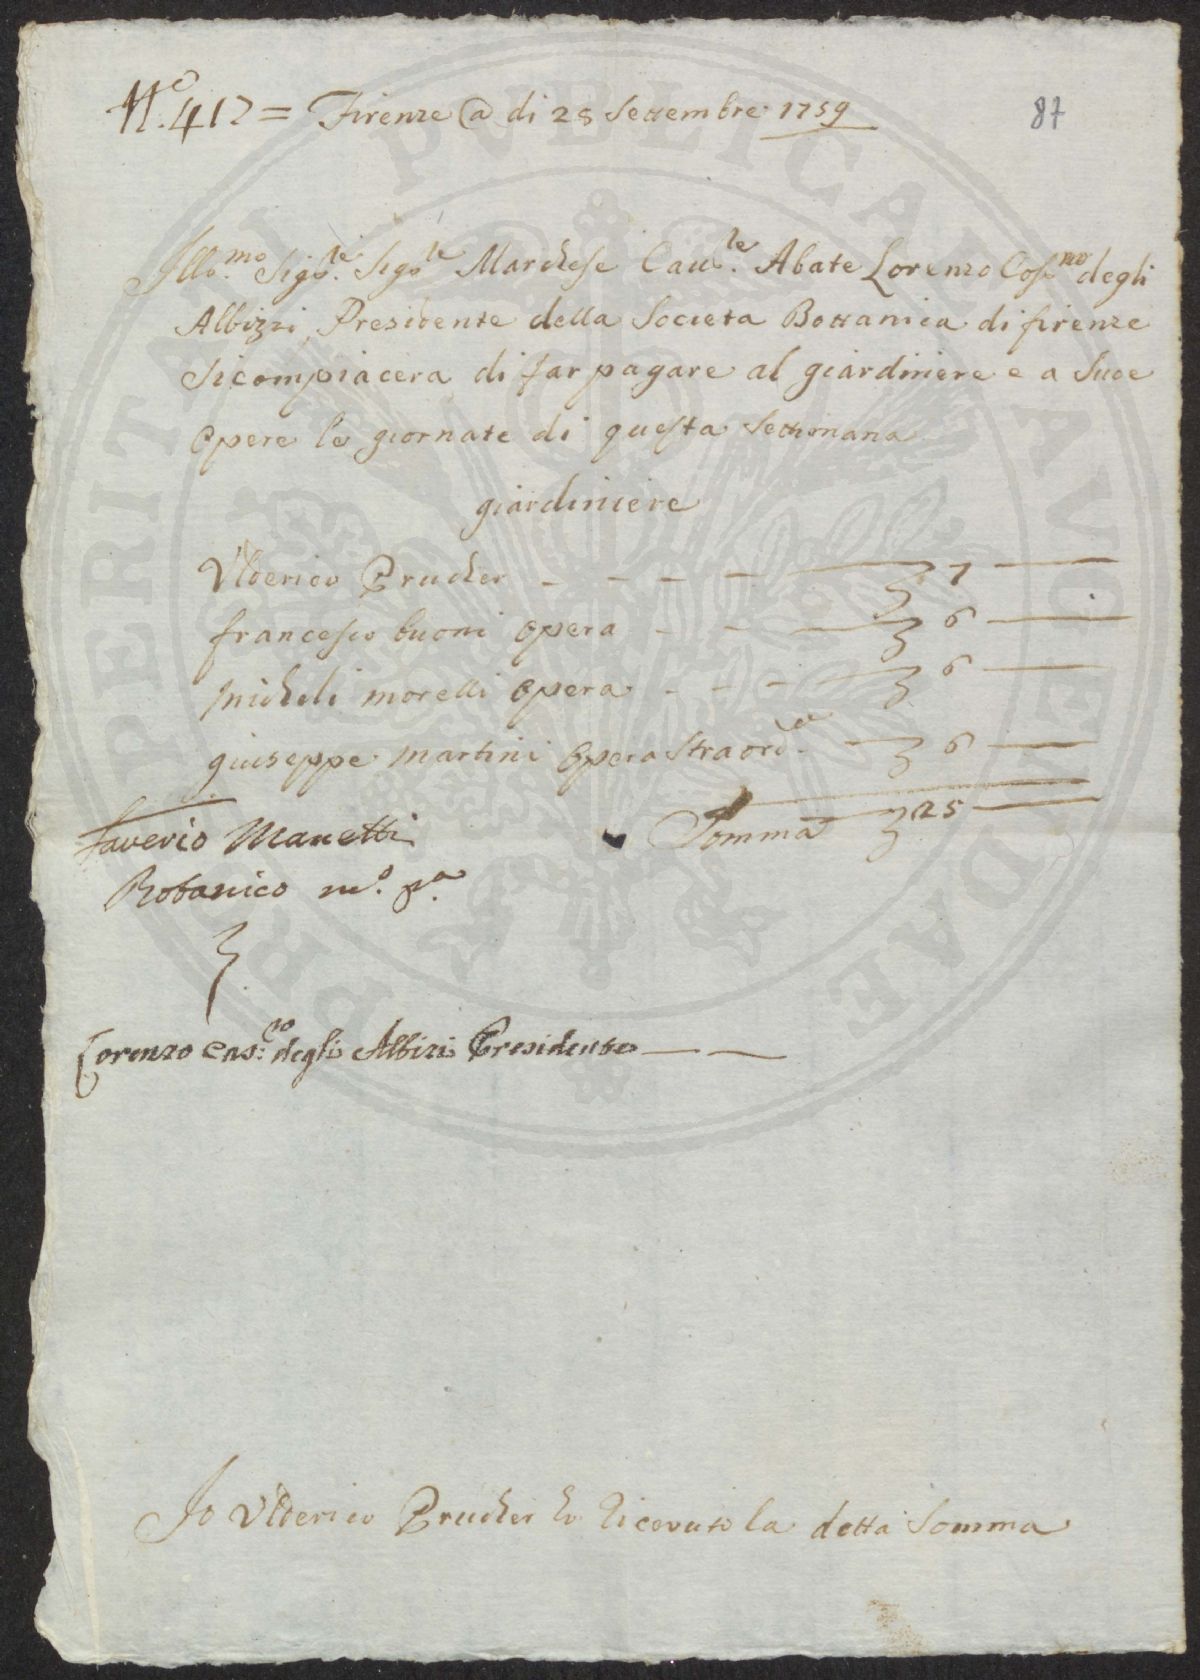 N.o 412 = Firenze @ di 28 Settembre 1759
87
Illo.mo Sigo.re Sigo.re Marchese Cau.re Abate Lorenzo Cosmo degli
Albizzi Presidente della Societa Bottanica di firenze
si compiacera di far pagare al giardiniere e a Sue
opere le giornate di questa Settimana
giardiniere
Ulderico Prucher - - - - 7
francesco buoni opera - - 6
micheli morelli opera - - - 6
giuseppe martini opera straord. 6
Somma 25
Saverio Manetti
Botanico m.o p.a
Lorenzo Cas.mo degli Albizi Presidente
Io Ulderico Prucher ho Ricevuto la detta Somma
PERITALI PVBLICAE AVGENDAE PROSPERITATI